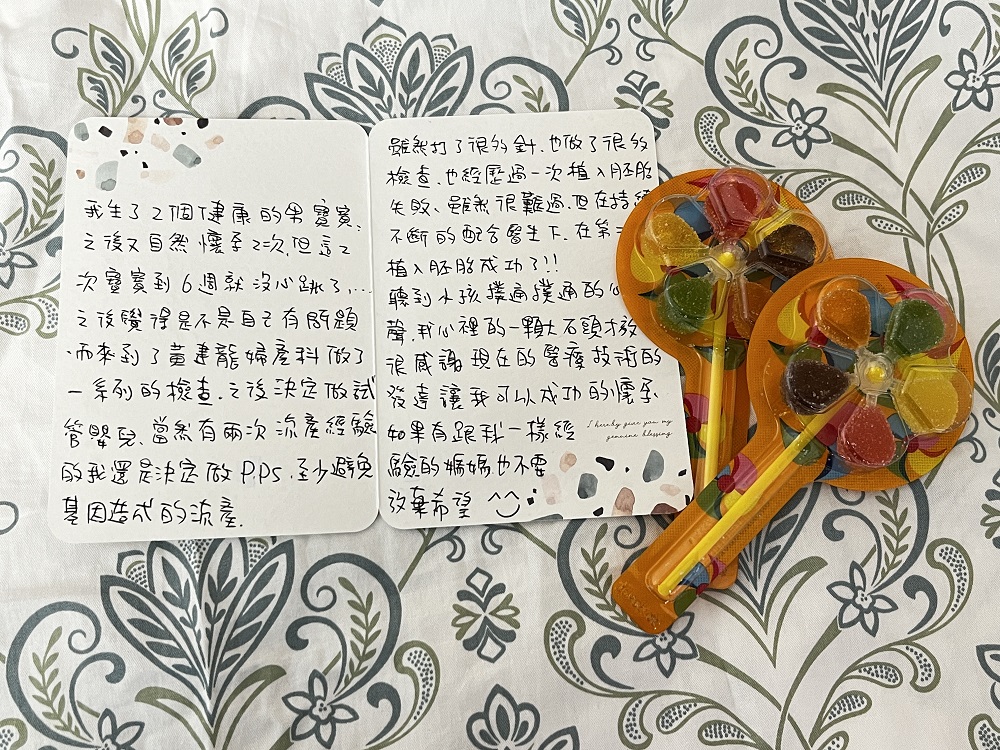 我生了2個健康的男寶寶、
之後又自然懷孕2次,但這2
次寶寶到6週就沒心跳了,...
之後覺得是不是自己有問題
、而來到了黃建龍婦產科做了
一系列的檢查.之後決定做試
管嬰兒、當然有兩次流產經驗
的我還是決定做P.P.DS.至少避免
基因造成的流產.
雖然打了很多針.也做了很多
檢查.也經歷過一次植入胚胎
失敗、雖然很難過.但在持續
不斷的配合醫生下.在第二
植入胚胎成功了!!
聽到小孩撲通撲通的心
聲.我心裡的一顆大石頭才放
很感謝現在的醫療技術的
發達讓我可以成功的懷孕
如果有跟我一樣經
驗的媽媽也不要
放棄希望 ^‿^
I hereby give you my
genuine blessing